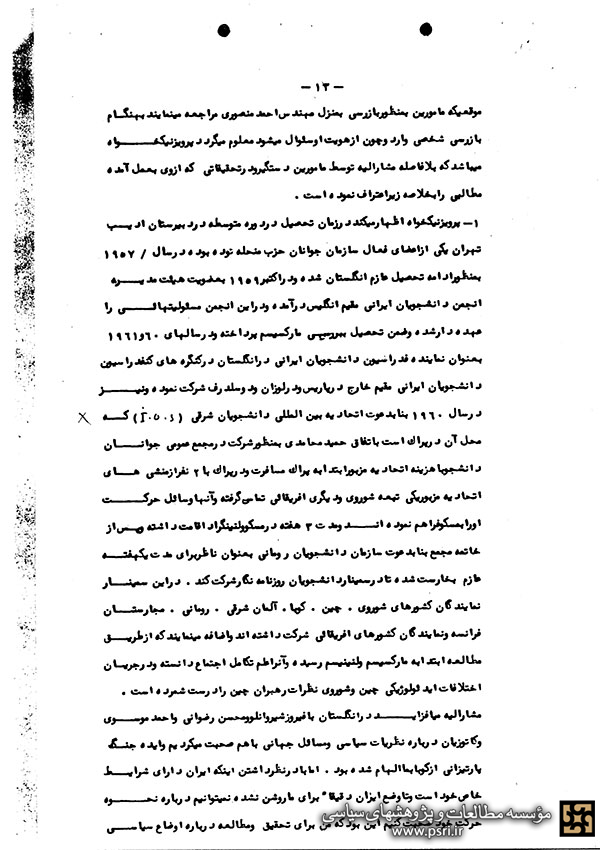 — ۱۳ —
موقعیکه مامورین بمنظور بازرسی بمنزل مهندس احمد منصوری مراجعه مینمایند بهنگام
بازرسی شخصی وارد وچون از هویت اوسئوال میشود معلوم میگردد پرویز نیکخواه
میباشد که بلافاصله مشارالیه توسط مامورین دستگیر ودر تحقیقاتی که ازوی بعمل آمده
مطالبی را بخلاصه زیر اعتراف نموده است .
۱ـ پرویز نیکخواه اظهار میکند در زمان تحصیل در دوره متوسطه در دبیرستان ادیب
تهران یکی از اعضای فعال سازمان جوانان حزب منحله توده بوده در سال / ۱۹۵۷
بمنظور ادامه تحصیل عازم انگلستان شده ودر اکتبر ۱۹۵۹ بعضویت هیئت مدیره
انجمن دانشجویان ایرانی مقیم انگلیس در آمده ودر این انجمن مسئولیتهائی را
عهده دار شده وضمن تحصیل ببررسی مارکسیسم پرداخته ودر سالهای ۶۰ و ۱۹۶۱
بعنوان نماینده فدراسیون دانشجویان ایرانی در انگلستان در کنگره های کنفدراسیون
دانشجویان ایرانی مقیم خارج در پاریس ودر لوزان ودوسلدرف شرکت نموده ونیز
در سال ۱۹۶۰ بنا بدعوت اتحادیه بین المللی دانشجویان شرقی (I.O.S) که
محل آن در پراک است باتفاق حمید محامدی بمنظور شرکت در مجمع عمومی جوانان
دانشجو با هزینه اتحادیه مزبور ابتدا به پراک مسافرت ودر پراک با ۲ نفر از منشی های
اتحادیه مزبور یکی تبعه شوروی ودیگری افریقائی تماس گرفته وآنها وسائل حرکت
اورا بمسکو فراهم نموده اند ومدت ۳ هفته در مسکو ولنینگراد اقامت داشته وپس از
خاتمه مجمع بنا بدعوت سازمان دانشجویان رومانی بعنوان ناظر برای مدت یکهفته
عازم بخارست شده تا در سمینار دانشجویان روزنامه نگار شرکت کند . در این سمینار
نمایندگان کشورهای شوروی . چین . کوبا . آلمان شرقی . رومانی . مجارستان
فرانسه ونمایندگان کشورهای افریقائی شرکت داشته اند واضافه مینمایند که از طریق
مطالعه ابتدا به مارکسیسم ولنینیسم رسیده وآنرا علم تکامل اجتماع دانسته ودر جریان
اختلافات ایدئولوژیکی چین وشوروی نظرات رهبران چین را درست شمرده است .
مشارالیه میافزاید در انگلستان با فیروز شیروانلو ومحسن رضوانی واحمد موسوی
وکاتوزیان درباره نظریات سیاسی ومسائل جهانی باهم صحبت میکردیم وایده جنگ
پارتیزانی از کوبا بما الهام شده بود . اما با در نظر داشتن اینکه ایران دارای شرایط
خاص خود است وتا وضع ایران دقیقاً برای ما روشن نشده نمیتوانیم درباره نحوه
حرکت خود صحبت کنیم این بود که من برای تحقیق ومطالعه درباره اوضاع سیاسی
مؤسسه مطالعات و پژوهشهای سیاسی
www.psri.ir